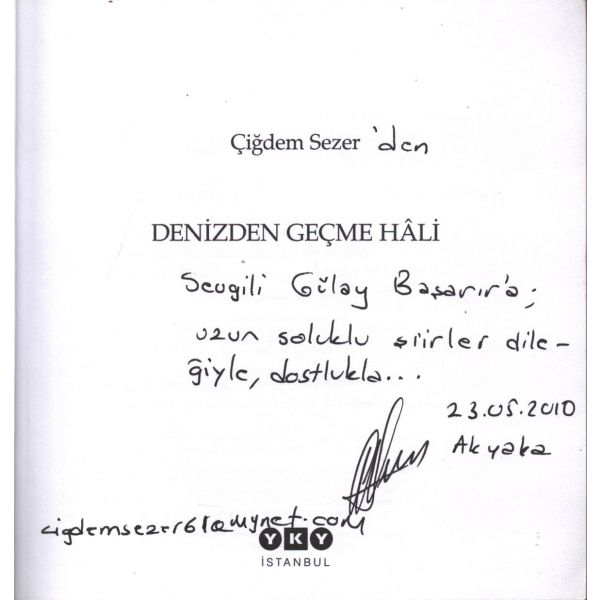 Çiğdem Sezer 'den
DENİZDEN GEÇME HÂLİ
Sevgili Gülay Başarır'a;
uzun soluklu şiirler dile-
ğiyle, dostlukla...
23.05.2010
Akyaka
çigdemsezer61@mynet.com
YKY
İSTANBUL